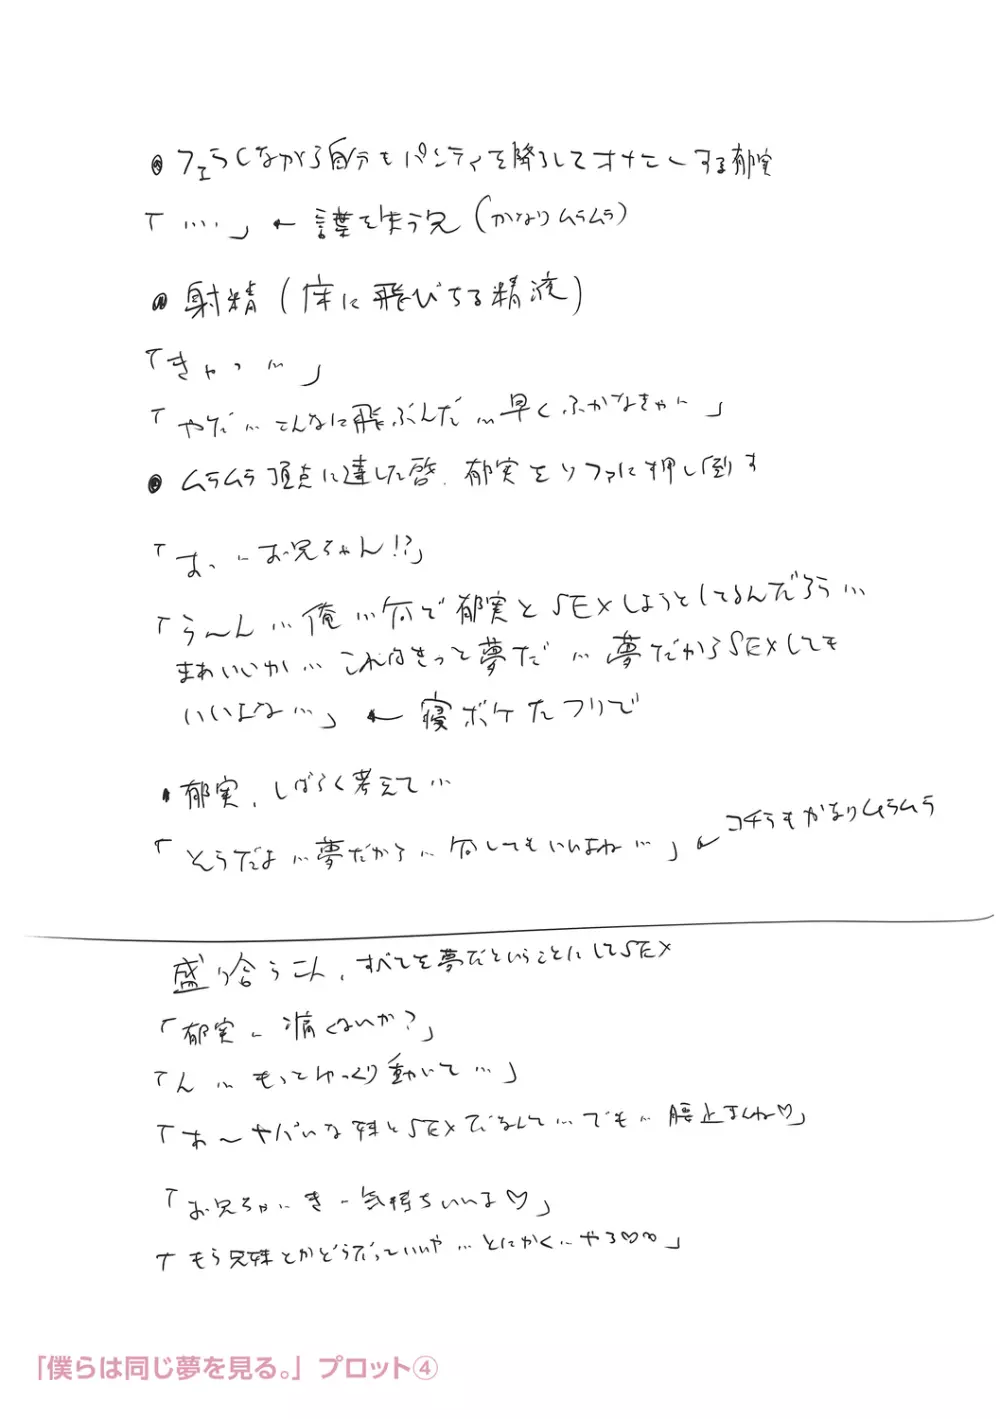 ●フェラしながら自分もパンティを降ろしてオナニーする郁実
「‥‥」←言葉を失う兄(かなりムラムラ)
●射精(床に飛びちる精液)
「きゃっ…」
「やだ…こんなに飛ぶんだ…早くふかなきゃ…」
●ムラムラ頂点に達した啓、郁実をソファに押し倒す
「あっ…お兄ちゃん!?」
「う〜ん…俺…何で郁実とSEXしようとしてるんだろう…
まあいいか…これはきっと夢だ…夢だからSEXしても
いいよな…」←寝ボケたフリで
・郁実、しばらく考えて…
「そうだよ…夢だから…何してもいいよね…」←コチラもかなりムラムラ
盛り合う二人、すべてを夢だということにしてSEX
「郁実…痛くないか?」
「ん…もっとゆっくり動いて…」
「あ〜ヤバいな妹とSEXだなんて…でも…腰止まんね♡」
「お兄ちゃ…き…気持ちいいよ♡」
「もう兄妹とかどうだっていいや…とにかく…やる♡♡」
「僕らは同じ夢を見る。」プロット④